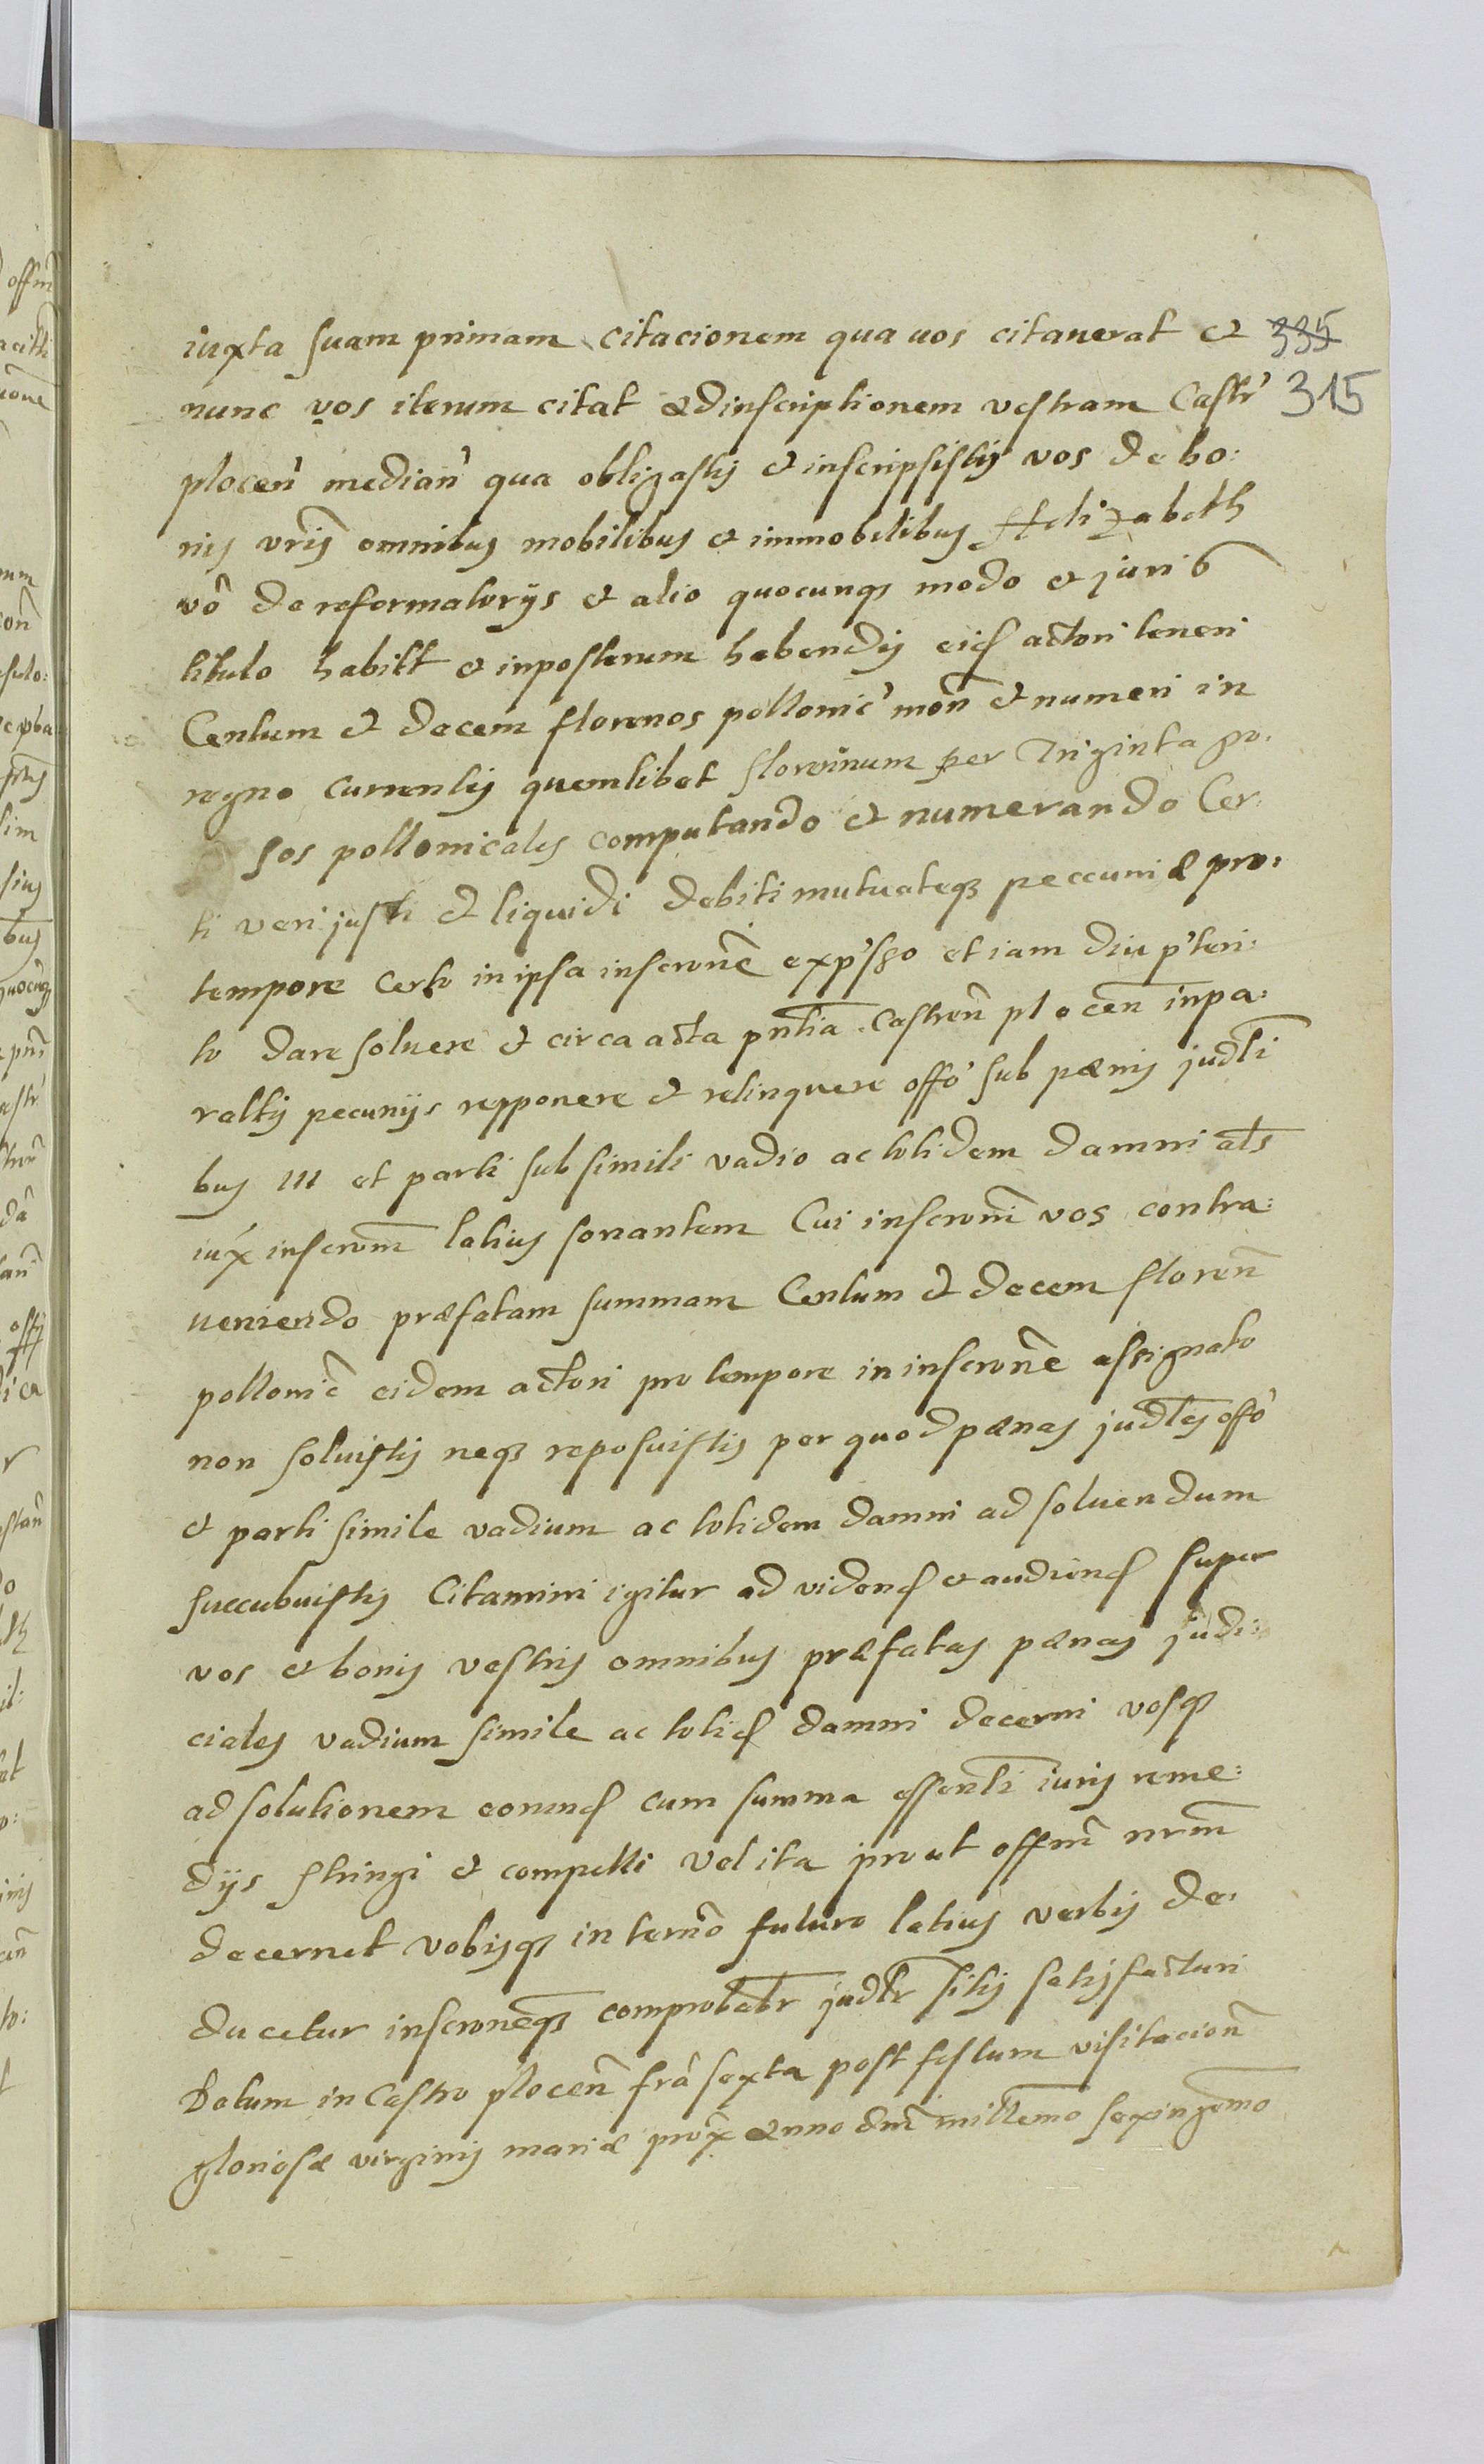 iuxta suam primam citacionem qua uos citauerat et 335
nunc vos iterum citat ad inscriptionem vestram Castr' 315
plocen' median' qua obligastis et inscripsistis vos de bo:
nis vris omnibus mobilibus et immobilibus Helizabeth
vo de reformatorijs et alio quocunqz modo et juris
titulo habitt et inposterum habendis eid actori teneri
Centum et decem florenos pollonic' mon et numeri in
regno currentis quemlibet florennum per Triginta gro:
ssos pollonicales computando et numerando Cer:
ti veri justi et liquidi debiti mutuateqz peccuniæ pro:
tempore certo in ipsa inscrone exp'sso et iam diu p'teri:
to dare soluere et circa acta pntia Castren plocen inpa:
ratis pecunijs repponere et relinquere offo' sub pænis judli
bus III et parti sub simili vadio ac totidem damni als
iux inscronm latius sonantem Cui inscroni vos contra:
ueniendo præfatam summam Centum et decem floren
pollonic eidem actori pro tempore in inscrone assignato
non soluistis neqz reposuistis per quod pænas judles offo'
et parti simile vadium ac totidem damni ad soluendum
succubuistis Citamini igitur ad vidend et audiend super
vos et bonis vestris omnibus præfatas pænas judi:
ciales vadium simile ac totid damni decerni vosqz
ad solutionem eorund cum summa essentli iuris reme:
dijs stringi et compelli vel ita prout offm nrm
decernet vobisqz in termo futuro latius verbis de:
ducetur inscroneqz comprobabtr judlr sitis satisfacturi
Datum in Castro plocen fra sexta post festum visitacion
gloriosæ virginis mariæ prox anno dni millemo sexingemo